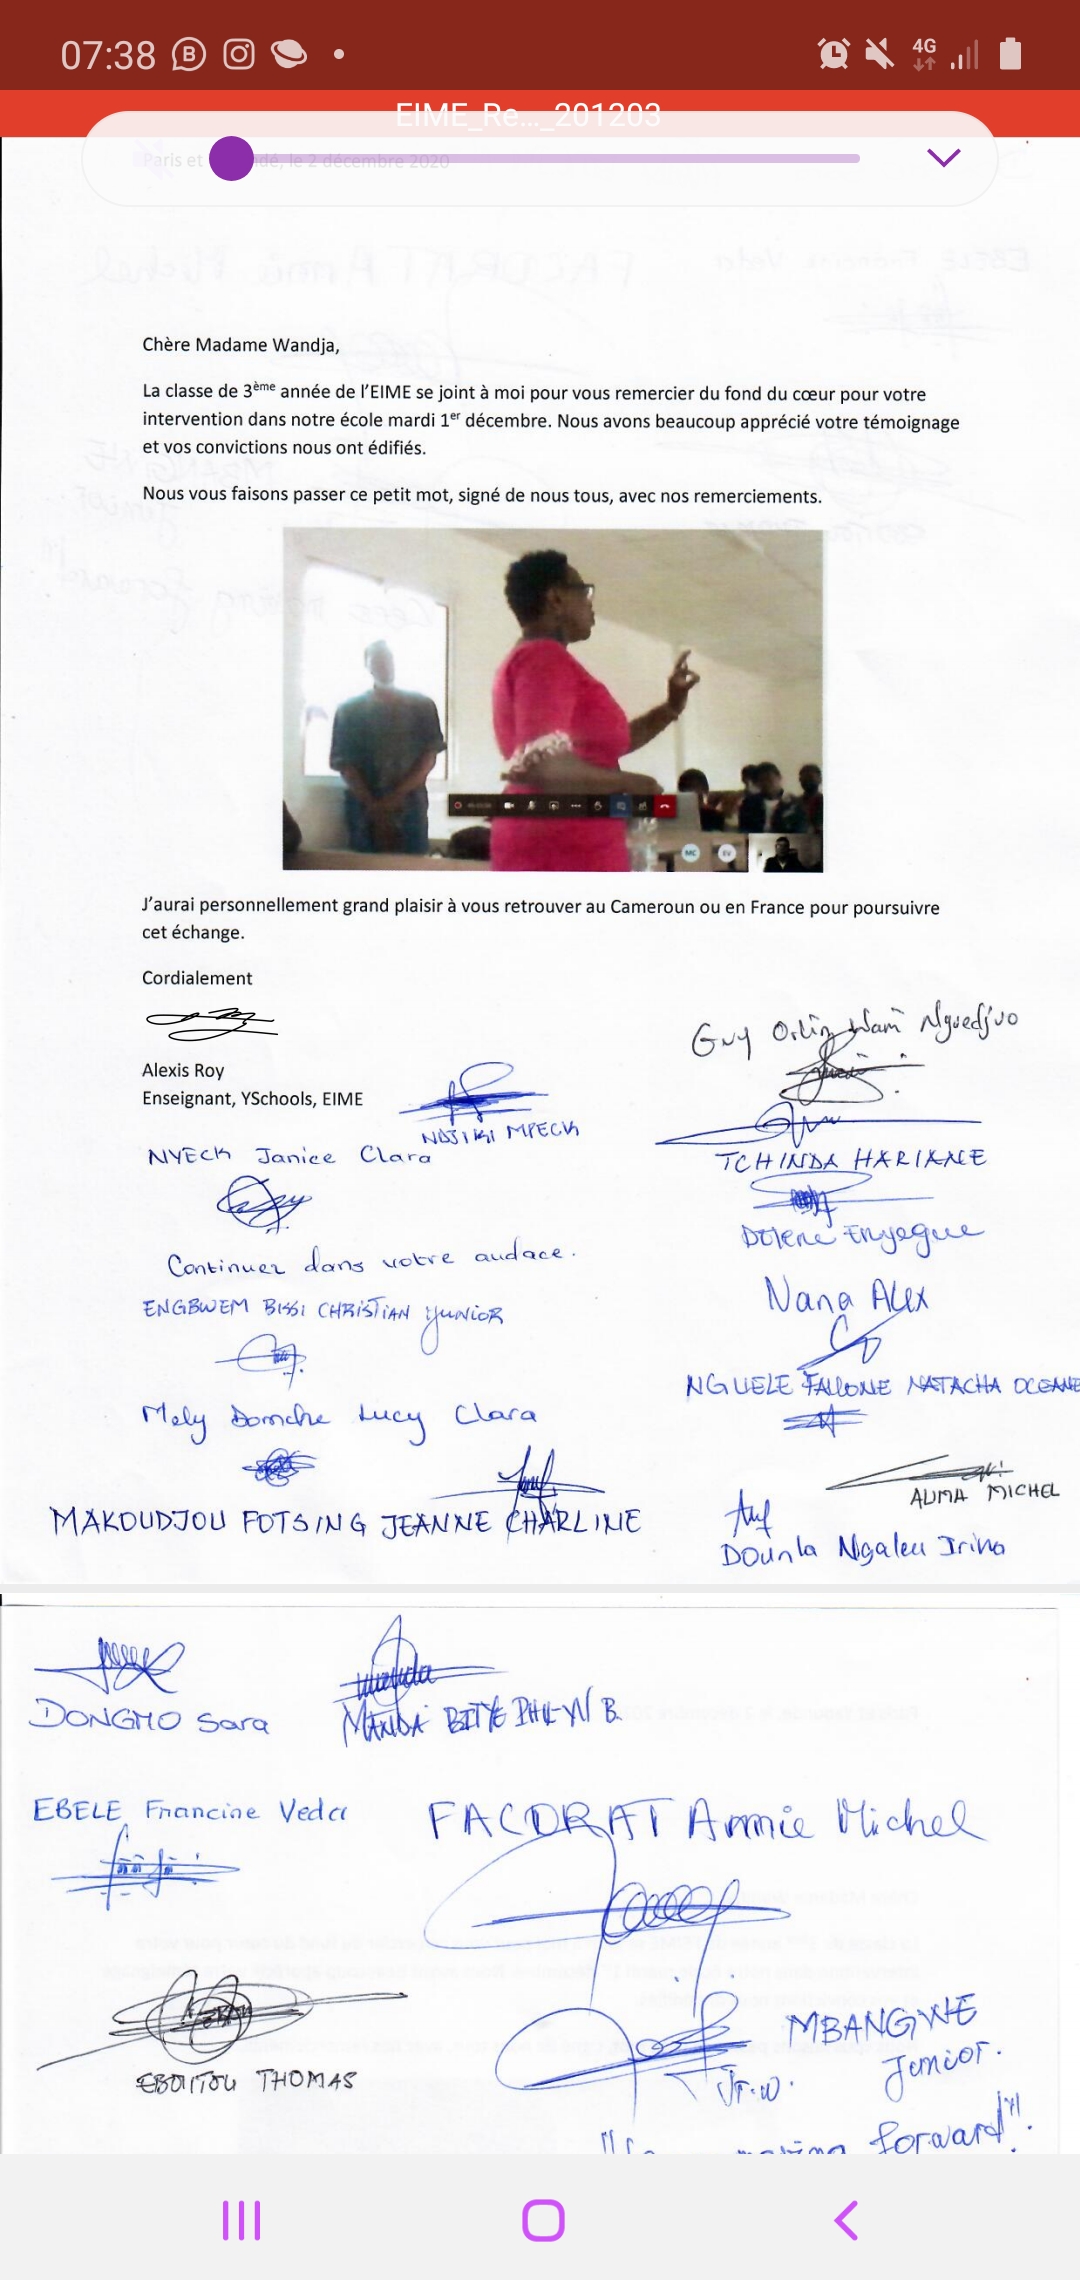 07:38
4G
EIME_Re..._201203
Paris et ndé, le 2 décembre 2020
Chère Madame Wandja,
La classe de 3ème année de l'EIME se joint à moi pour vous remercier du fond du cœur pour votre
intervention dans notre école mardi 1er décembre. Nous avons beaucoup apprécié votre témoignage
et vos convictions nous ont édifiés.
Nous vous faisons passer ce petit mot, signé de nous tous, avec nos remerciements.
MC EV
J'aurai personnellement grand plaisir à vous retrouver au Cameroun ou en France pour poursuivre
cet échange.
Cordialement
Alexis Roy
Enseignant, YSchools, EIME
Guy Orlin Wami Nguedjuo
NDJIKI MPECK
NYECK Janice Clara
TCHINDA HARIANE
Enyegue
Continuez dans votre audace.
Nana Alex
ENGBWEM BISSI CHRISTIAN JUNIOR
NGUELE FALLONE NATACHA OCEANE
Mely Lucy Clara
ALIMA MICHEL
MAKOUDJOU FOTSING JEANNE CHARLINE
Dounla Ngaleu Irina
DONGMO Sara
MANDA
EBELE Francine Veder
FACORAT Annie Michel
MBANGWE
Junior.
Jr.W.
EBOITOU THOMAS
moving forward"!